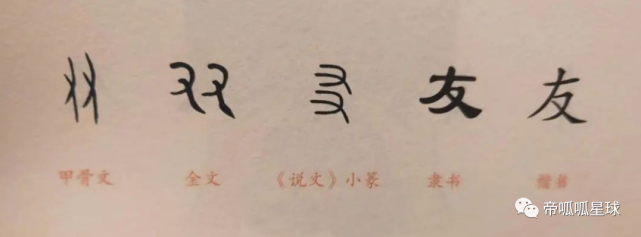 友 友
甲骨文 金文 《说文》小篆 隶书 楷书
帝呱呱星球